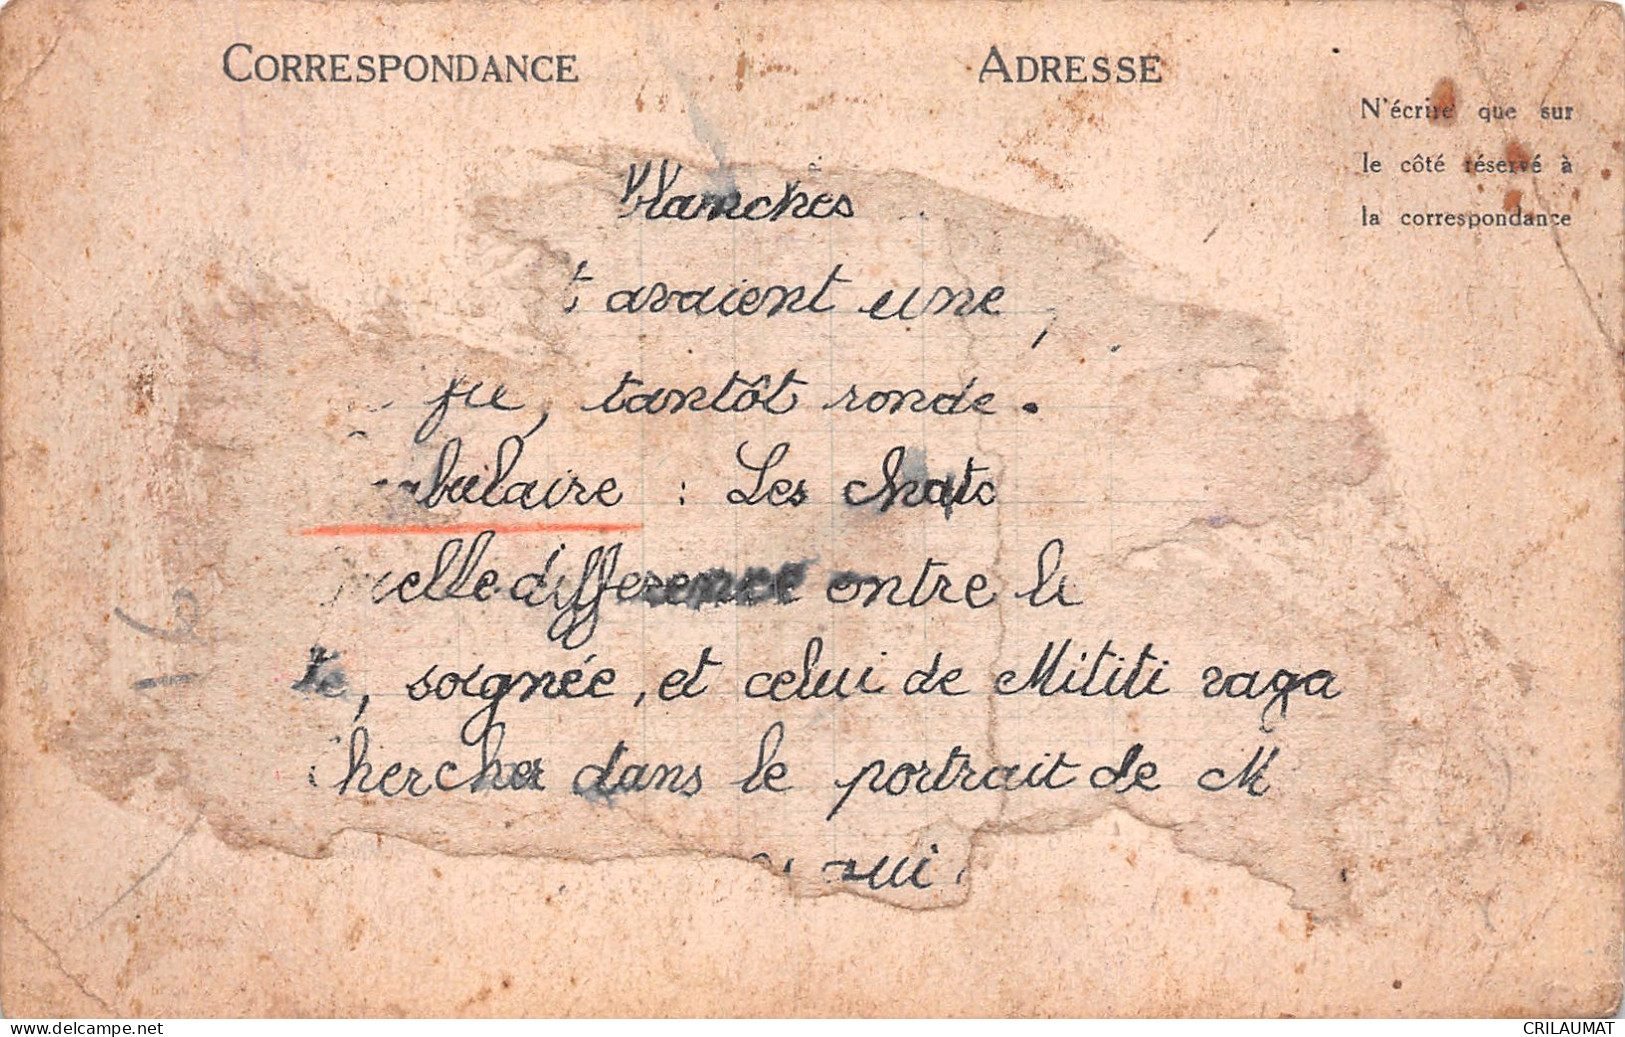 CORRESPONDANCE
ADRESSE
N'écrire que sur
le côté réservé à
la correspondance
blanches
t avaient une
, tantôt ronde.
bulaire : Les chats
elle difference entre le
te, soignée, et celui de Mititi raga
Chercher dans le portrait de M
qui
16
delcampe.net
CRILAUMAT